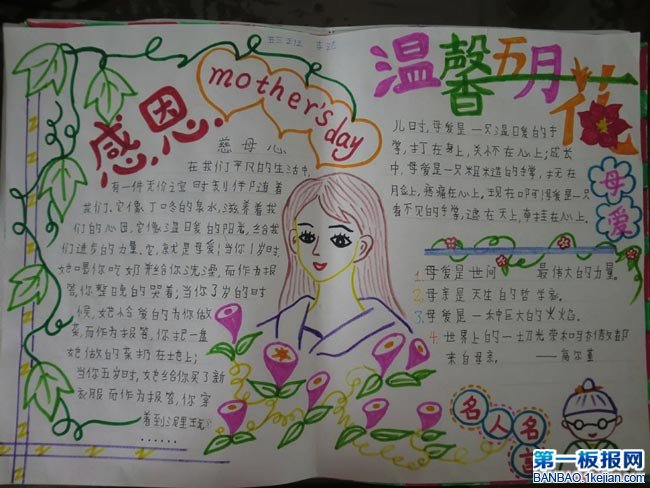 感恩
mother's day
慈母心
在我们平凡的生活中,
有一件无价之宝时刻伴随着
我们。它像丁冬的泉水,滋养着我
们的心田,它像温暖的阳光,给我
们进步的力量。它,就是母爱;当你1岁时,
她喂你吃奶并给你洗澡,而作为报
答,你整晚的哭着;当你3岁的时
候,她怜爱的为你做
菜,而作为报答,你把一盘
她做的菜扔在地上;
当你五岁时,她给你买了新
衣服而作为报答,你穿
着到泥里玩
......
温馨五月花
儿时,母爱是一只温暖的手
掌,打在身上,关怀在心上;成长
中,母爱是一只粗糙的手掌,
疼痛在心上。现在
看不见的手掌,遮在天上,牵挂在心上。
母爱
1.母爱是世间最伟大的力量。
2.母亲是天生的哲学家。
3.母爱是一种巨大的火焰。
4.世界上的一切光荣和骄傲都
来自母亲。——高尔基
名人名言
第一板报网
BANBAO.1kejian.com